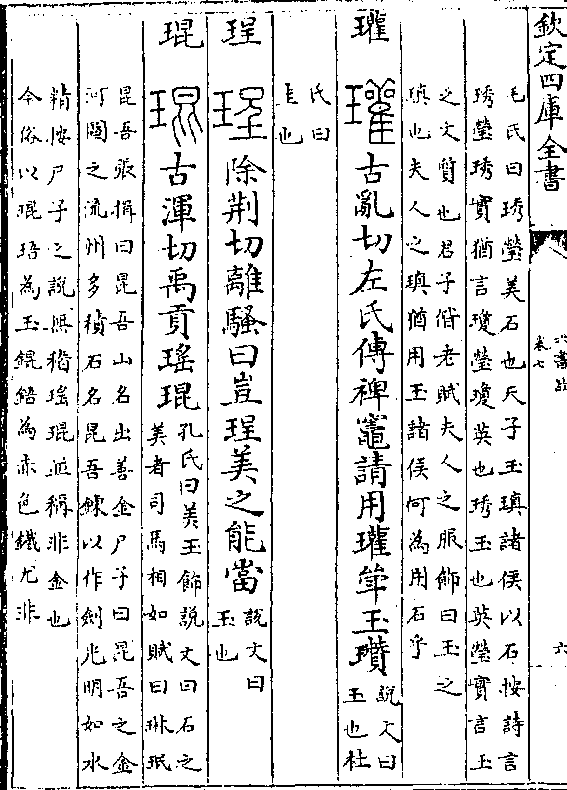 欽定四庫全書
六書故
卷七
六
毛氏曰琇瑩美石也天子玉瑱諸侯以石按詩言
琇瑩琇實猶言瓊瑩瓊英也琇玉也英瑩實言玉
之文質也君子偕老賦夫人之服飾曰玉之
瑱也夫人之瑱猶用玉諸侯何為用石乎
瓘 瓘 古亂切左氏傳裨竈請用瓘斝玉瓚
說文曰
玉也杜
氏曰
圭也
珵 珵 除荆切離騷曰豈珵美之能當
說文曰
玉也
琨 琨 古渾切禹貢瑶琨
孔氏曰美玉飾說文曰石之
美者司馬相如賦曰琳珉
昆吾張揖曰昆吾山名出善金尸子曰昆吾之金
河圖之流州多積石名昆吾鍊以作劍光明如水
精按尸子之說無稽瑶琨並稱非金也
今俗以琨珸為玉錕鋙為赤色鐵尤非